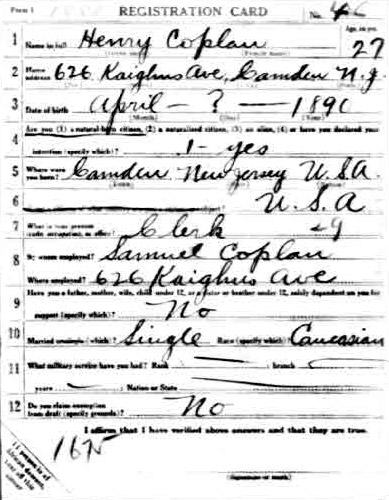 Form 1 REGISTRATION CARD No. 46
1 Name in full Henry Coplan Age, in yrs. 27
2 Home address 626 Kaighns Ave, Camden N.J.
3 Date of birth April — ? — 1890
(Month) (Day) (Year)
Are you (1) a natural-born citizen, (2) a naturalized citizen, (3) an alien, (4) or have you declared your
4 intention (specify which)? 1- yes
5 Where were you born? Camden New Jersey U.S.A.
6 U.S.A
7 What is your present trade, occupation, or office? Clerk 29
8 By whom employed? Samuel Coplan
Where employed? 626 Kaighns Ave
9 Have you a father, mother, wife, child under 12, or a sister or brother under 12, solely dependent on you for
support (specify which)? No
10 Married or single (which)? Single Race (specify which)? Caucasian
11 What military service have you had? Rank branch
years ; Nation or State
12 Do you claim exemption from draft (specify grounds)? No
I affirm that I have verified above answers and that they are true.
(Signature or mark)
If person is of African descent, tear off this corner